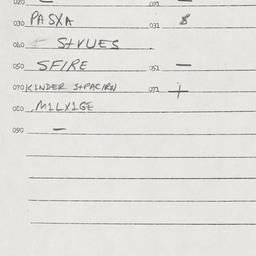 020 021
030 PASXA 031 8
060 STVUES
050 SFIRE 051 —
070 KINDER S+PACIRN 071 +
080 .MILXIGE
090 —